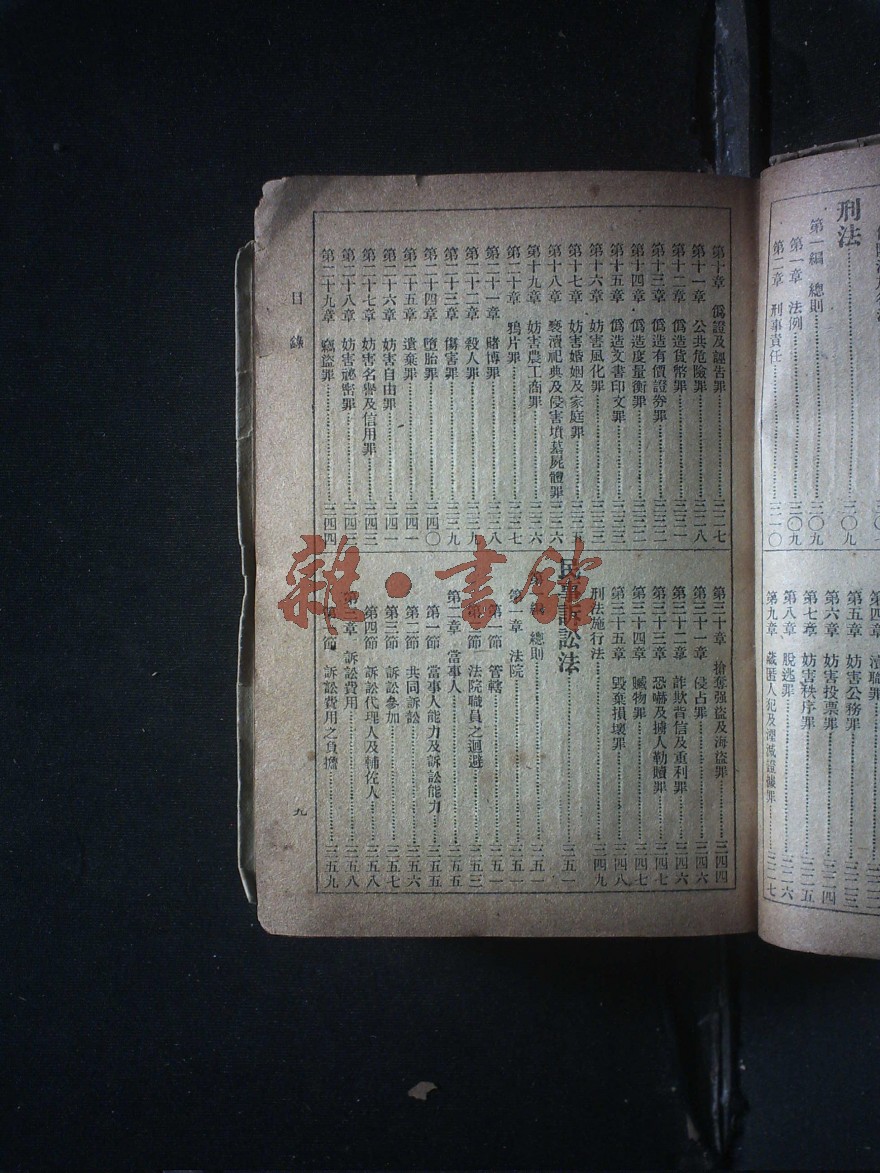 刑法……三〇九
第一編 總則……三〇九
第一章 法例……三〇九
第二章 刑事責任……三一〇
第四章 瀆職罪
第五章 妨害公務罪……三二三
第六章 妨害投票罪……三二四
第七章 妨害秩序罪……三二五
第八章 脫逃罪……三二六
第九章 藏匿人犯及湮滅證據罪……三二七
第十章 僞證及誣告罪……三二七
第十一章 公共危險罪……三二八
第十二章 僞造貨幣罪……三三一
第十三章 僞造有價證券罪……三三二
第十四章 僞造度量衡罪……三三二
第十五章 僞造文書印文罪……三三三
第十六章 妨害風化罪……三三三
第十七章 妨害婚姻及家庭罪……三三五
第十八章 褻瀆祀典及侵害墳墓屍體罪……三三六
第十九章 妨害農工商罪……三三六
第二十章 鴉片罪……三三七
第二十一章 賭博罪……三三八
第二十二章 殺人罪……三三九
第二十三章 傷害罪……三三九
第二十四章 墮胎罪……三四〇
第二十五章 遺棄罪……三四一
第二十六章 妨害自由罪……三四一
第二十七章 妨害名譽及信用罪……三四三
第二十八章 妨害祕密罪……三四三
第二十九章 竊盜罪……三四四
第三十章 搶奪强盜及海盜罪……三四四
第三十一章 侵占罪……三四六
第三十二章 詐欺背信及重利罪……三四六
第三十三章 恐嚇及擄人勒贖罪……三四七
第三十四章 贓物罪……三四七
第三十五章 毀棄損壞罪……三四八
刑法施行法……三四九
民事訴訟法……三五一
第一編 總則……三五一
第一章 法院……三五一
第一節 管轄……三五一
第二節 法院職員之迴避……三五三
第二章 當事人……三五五
第一節 當事人能力及訴訟能力……三五五
第二節 共同訴訟……三五六
第三節 訴訟參加……三五七
第四節 訴訟代理人及輔佐人……三五八
第三章 訴訟費用……三五八
第一節 訴訟費用之負擔……三五九
目錄
九
雜·書館